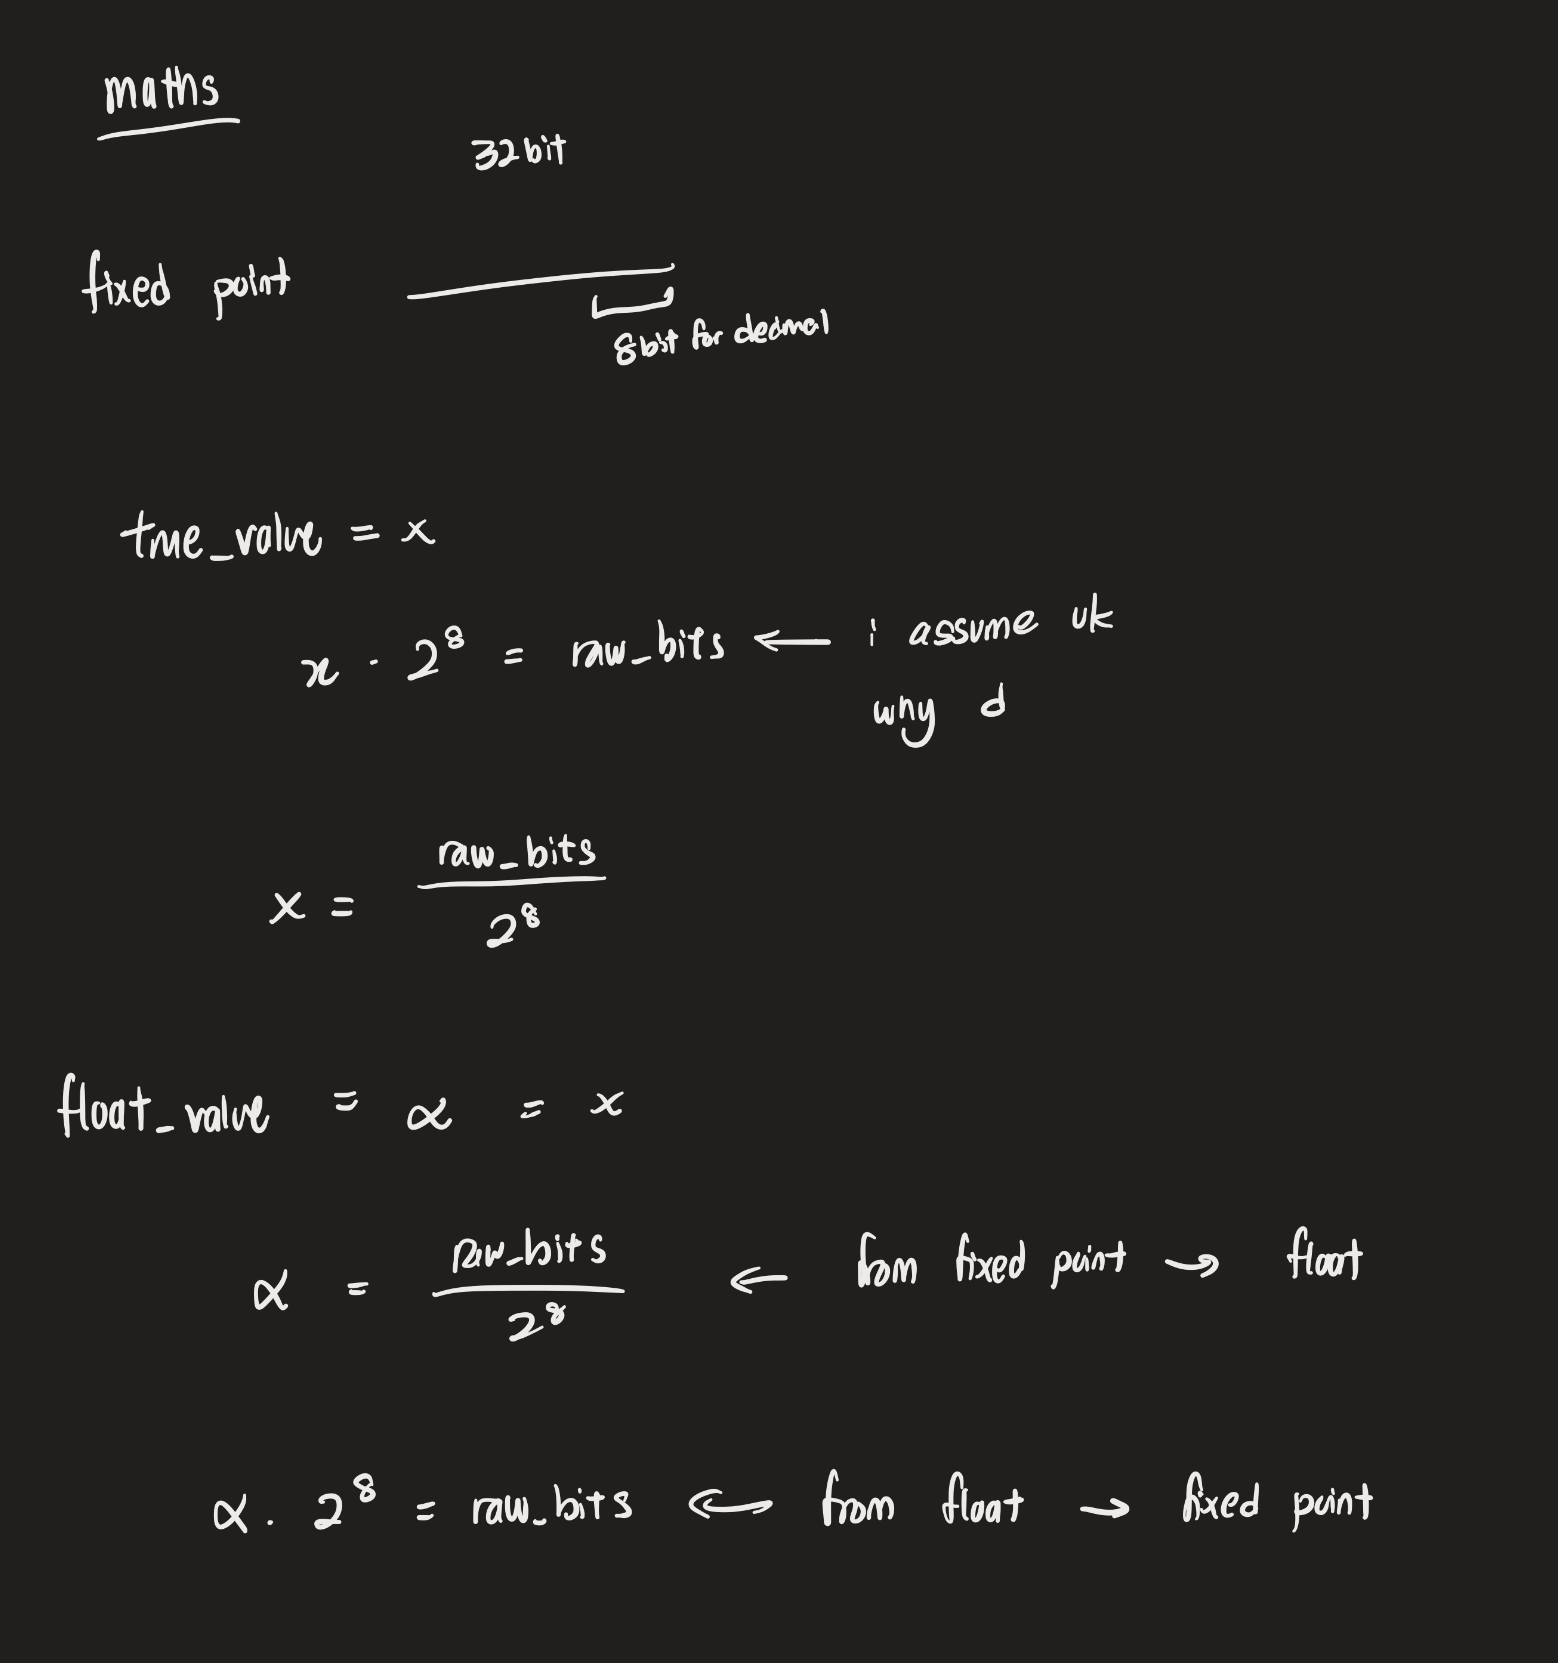 maths
32bit
fixed point
8bit for decimal
true_value = x
x · 2⁸ = raw_bits ← i assume uk
why d
x = raw_bits / 2⁸
float_value = α = x
α = raw_bits / 2⁸ ← from fixed point → float
α · 2⁸ = raw_bits ← from float → fixed point